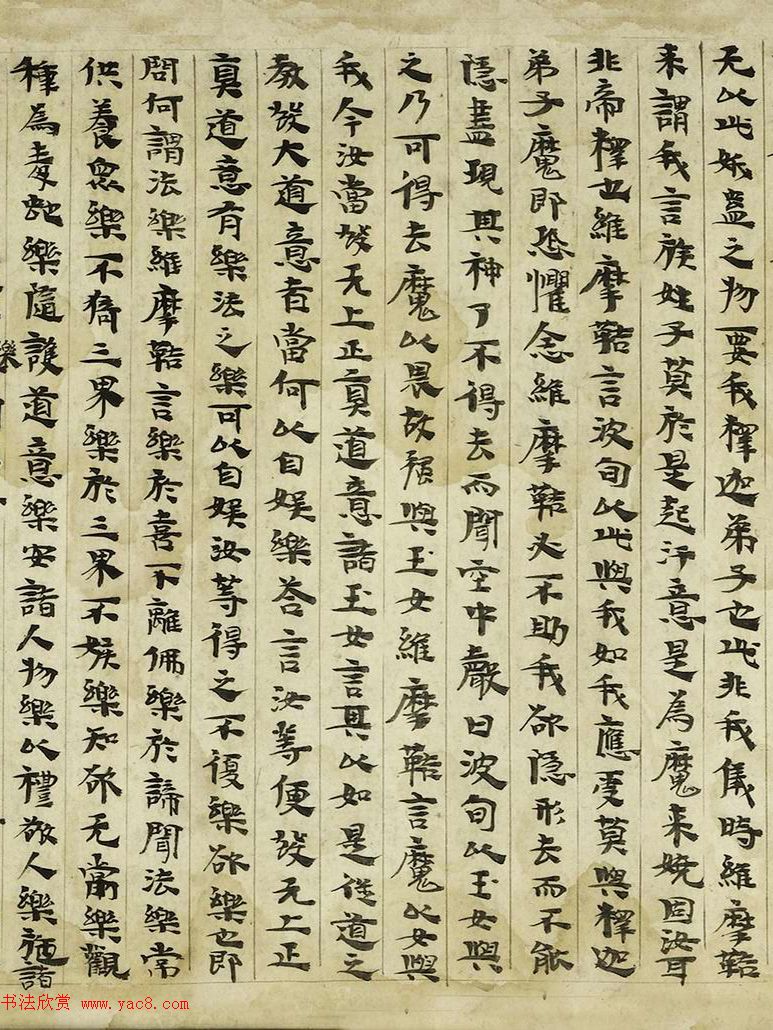 无以此妖蠱之物要我釋迦弟子也此非我儀時維摩鞊
来謂我言族姓子莫於是起汙意是為魔来嬈固汝耳
非帝釋也維摩鞊言波旬以此與我如我應受莫與釋迦
弟子魔即恐懼念維摩鞊必不助我欲隱形去而不能
隱盡現其神了不得去而聞空中聲曰波旬以玉女與
之乃可得去魔以畏故强與玉女維摩鞊言魔以女與
我今汝當發无上正真道意諸玉女言其以如是從道之
教發大道意者當何以自娱樂荅言汝等便發无上正
真道意有樂法之樂可以自娱汝等得之不復樂欲樂也即
問何謂法樂維摩鞊言樂於喜不離佛樂於諦聞法樂常
供養衆樂不猗三界樂於三界不嫉樂知欲无常樂觀
種為毒蛇樂隨護道意樂安諸人物樂以禮敬人樂施諸
樂
书法欣赏 www.yac8.com